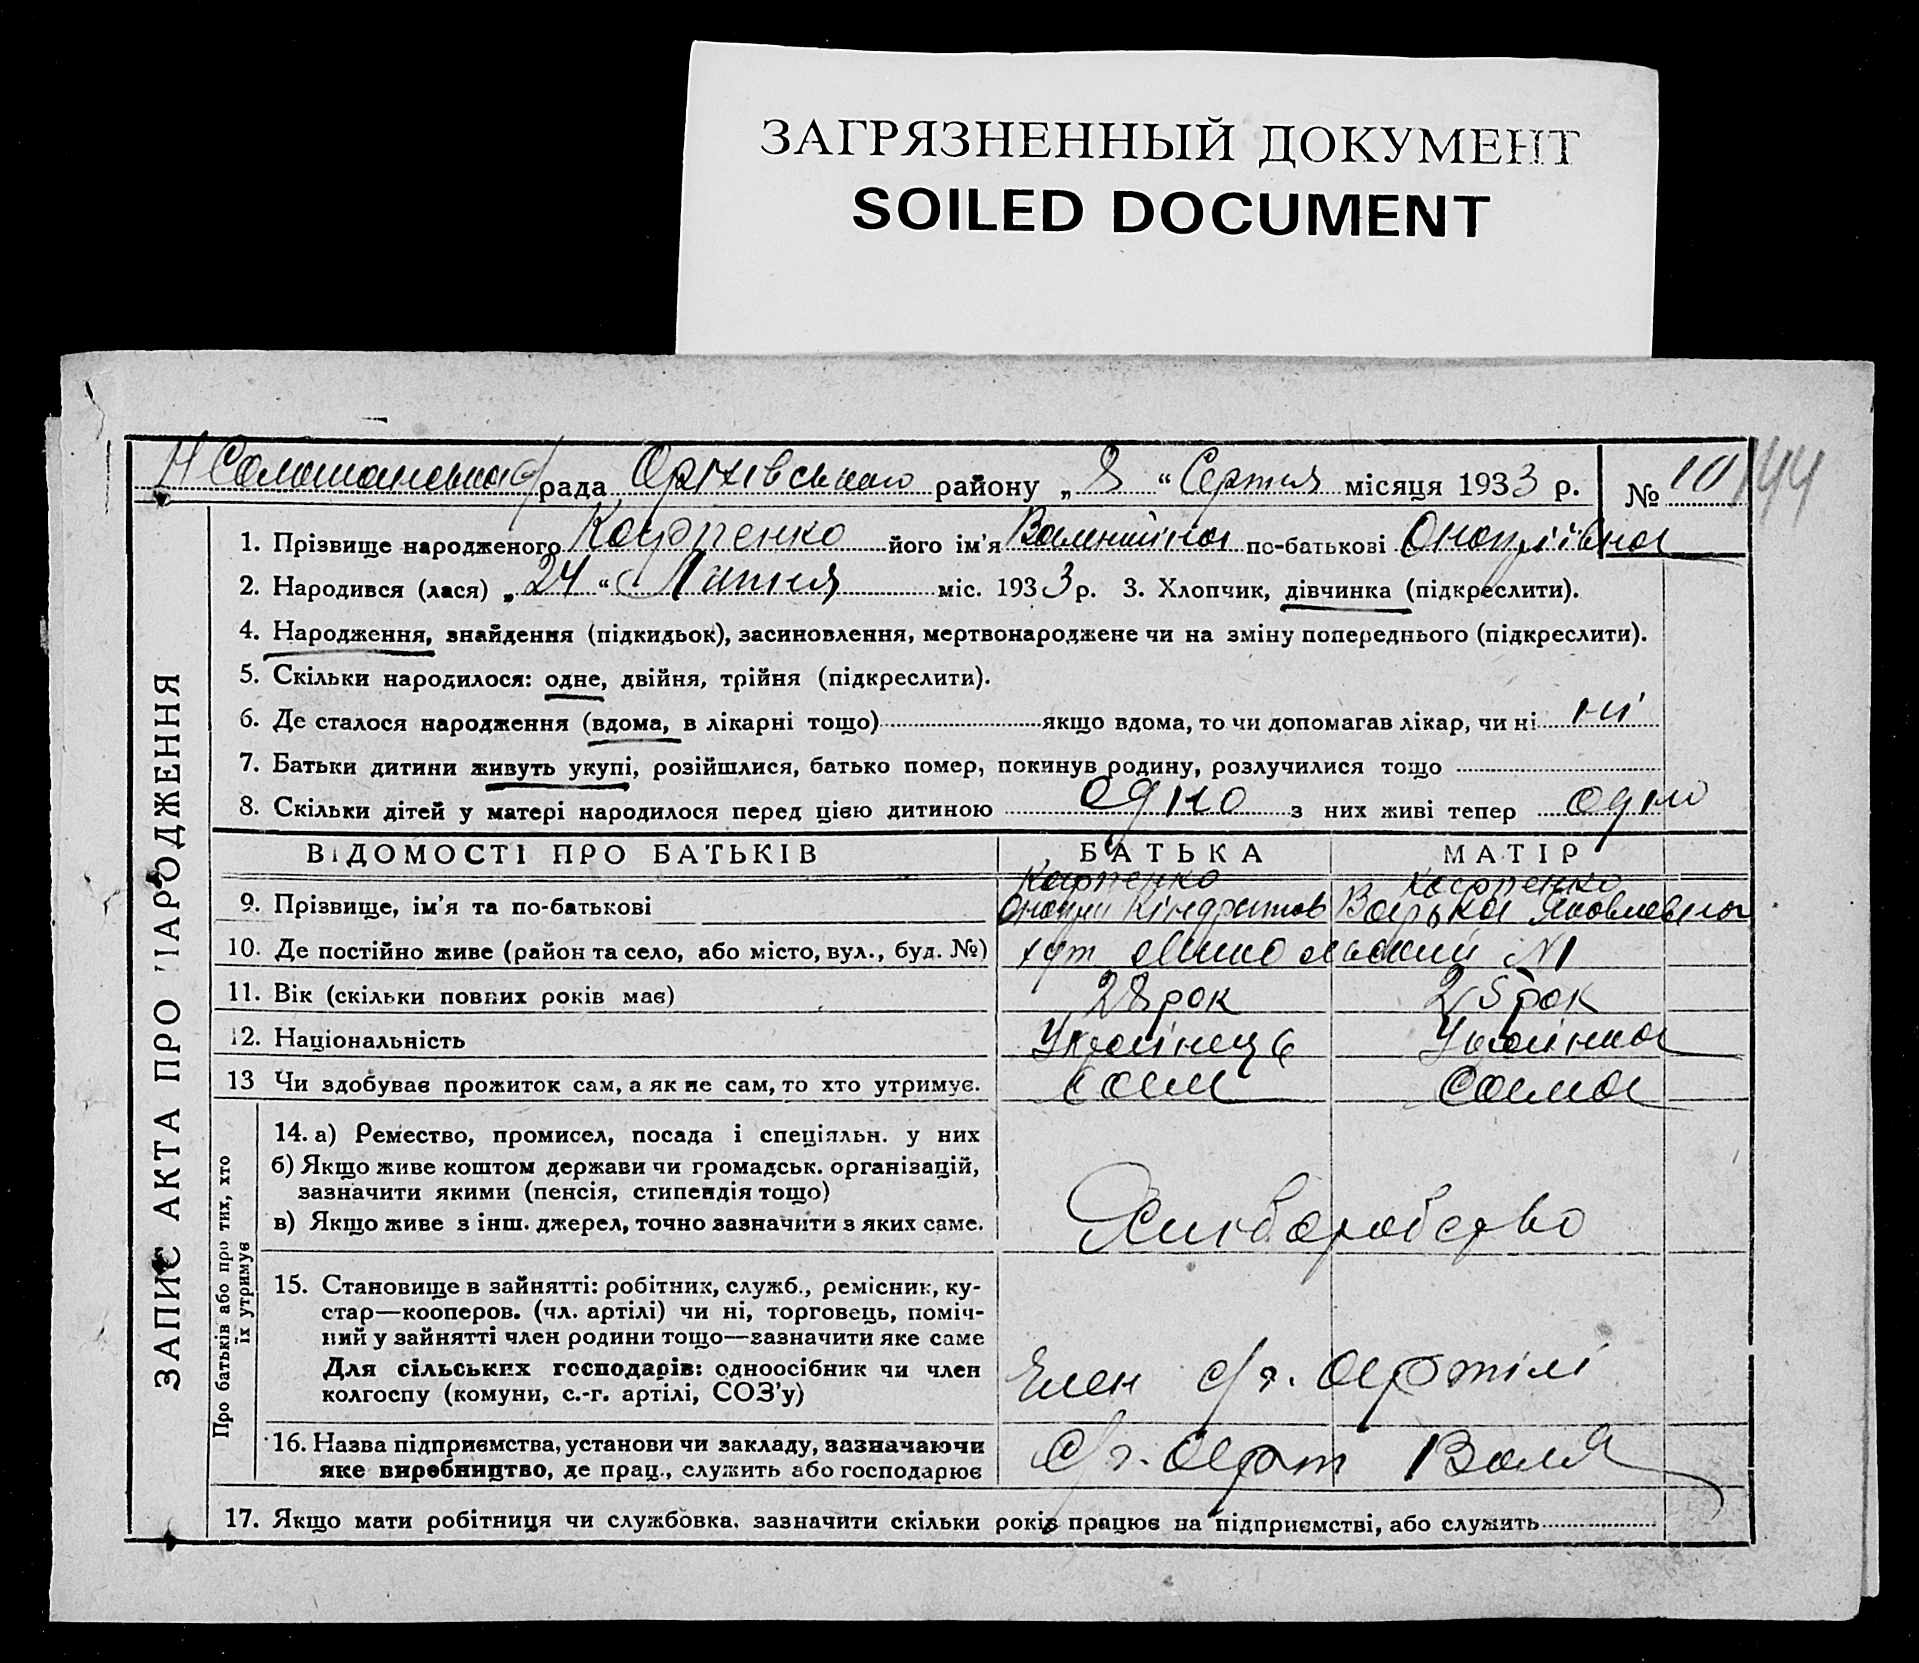 ЗАГРЯЗНЕННЫЙ ДОКУМЕНТ
SOILED DOCUMENT
рада Оріхівського району „ 8 “ Серпня місяця 1933 р. № 10
144
1. Прізвище народженого Карпенко його ім'я Валентина по-батькові Онопріївна
2. Народився (лася) „ 24 “ Липня міс. 1933 р. 3. Хлопчик, дівчинка (підкреслити).
4. Народження, знайдення (підкидьок), засиновлення, мертвонароджене чи на зміну попереднього (підкреслити).
5. Скільки народилося: одне, двійня, трійня (підкреслити).
6. Де сталося народження (вдома, в лікарні тощо) якщо вдома, то чи допомагав лікар, чи ні ні
7. Батьки дитини живуть укупі, розійшлися, батько помер, покинув родину, розлучилися тощо
8. Скільки дітей у матері народилося перед цією дитиною одно з них живі тепер одно
ВІДОМОСТІ ПРО БАТЬКІВ БАТЬКА МАТІР
Карпенко Карпенко
9. Прізвище, ім'я та по-батькові Кіндратов Варька Яковлевна
10. Де постійно живе (район та село, або місто, вул., буд. №) хут №1
11. Вік (скільки повних років має) 28 рок 25 рок
12. Національність Українець Українка
13 Чи здобуває прожиток сам, а як не сам, то хто утримує. сам сама
14. а) Ремество, промисел, посада і спеціяльн. у них
б) Якщо живе коштом держави чи громадськ. організацій,
зазначити якими (пенсія, стипендія тощо)
в) Якщо живе з інш. джерел, точно зазначити з яких саме.
Хліборобство
15. Становище в зайнятті: робітник, служб., ремісник, ку-
стар—кооперов. (чл. артілі) чи ні, торговець, поміч-
ний у зайнятті член родини тощо—зазначити яке саме
Для сільських господарів: одноосібник чи член
колгоспу (комуни, с.-г. артілі, СОЗ'у)
Член с/г. артілі
16. Назва підприємства, установи чи закладу, зазначаючи
яке виробництво, де прац., служить або господарює
с/г. арт Воля
17. Якщо мати робітниця чи службовка, зазначити скільки років працює на підприємстві, або служить
ЗАПИС АКТА ПРО НАРОДЖЕННЯ
Про батьків або про тих, хто
їх утримує